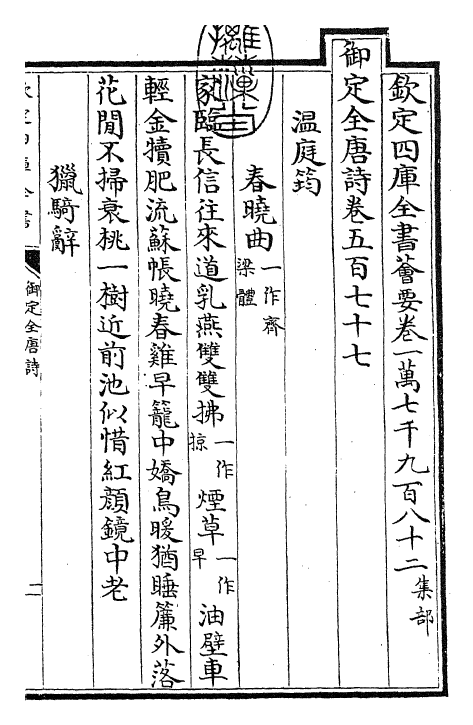 欽定四庫全書薈要卷一萬七千九百八十二集部
御定全唐詩卷五百七十七
温庭筠
春曉曲一作齊梁體
家臨長信往來道乳燕雙雙拂一作掠煙草一作早油壁車
輕金犢肥流蘇帳曉春雞早籠中嬌鳥暖猶睡簾外落
花閒不掃衰桃一樹近前池似惜紅顔鏡中老
獵騎辭
御定全唐詩